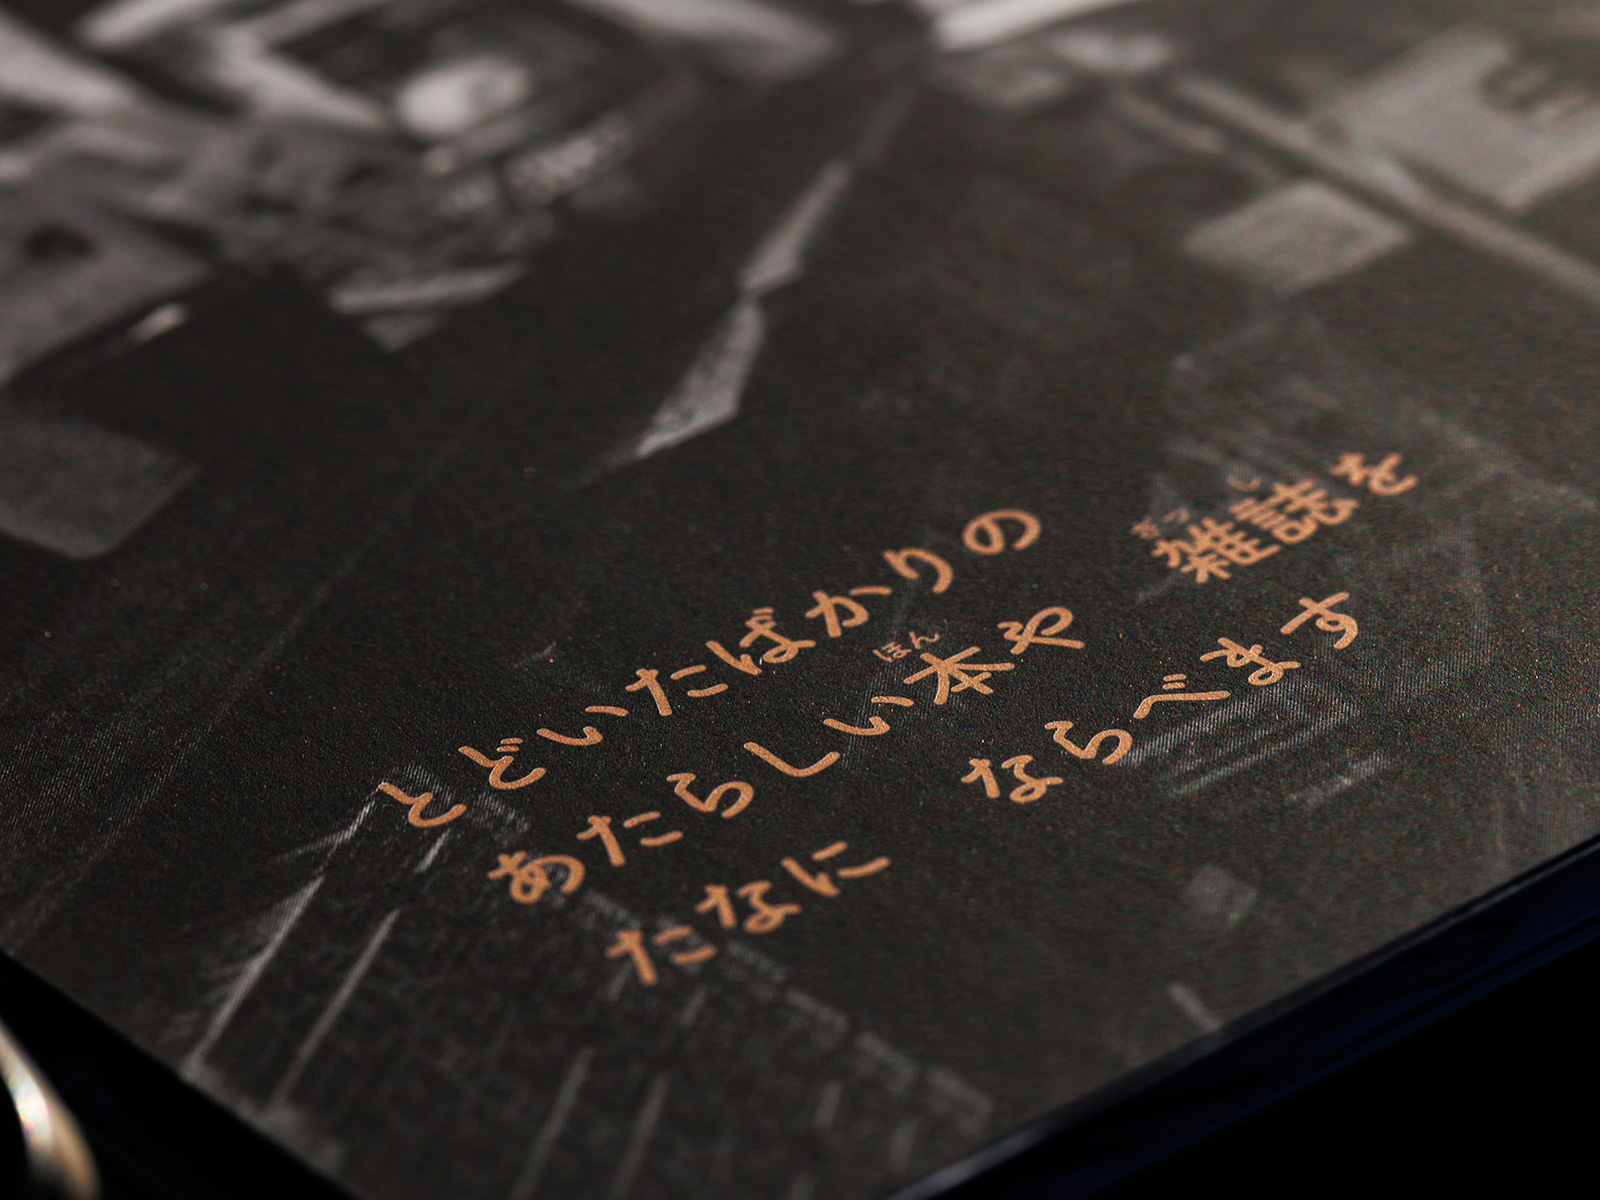 とどいたばかりの
あたらしい本や 雑誌を
たなに ならべます
ほん
ざっし